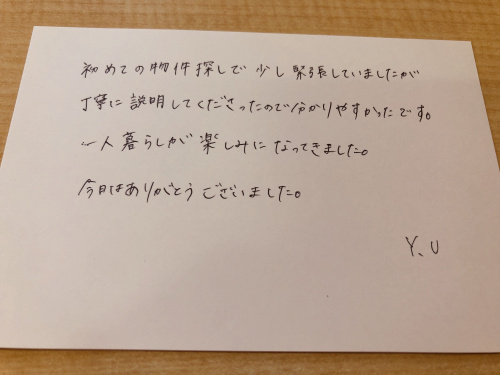 初めての物件探しで少し緊張していましたが
丁寧に説明してくださったので分かりやすかったです。
一人暮らしが楽しみになってきました。
今日はありがとうございました。
Y、U